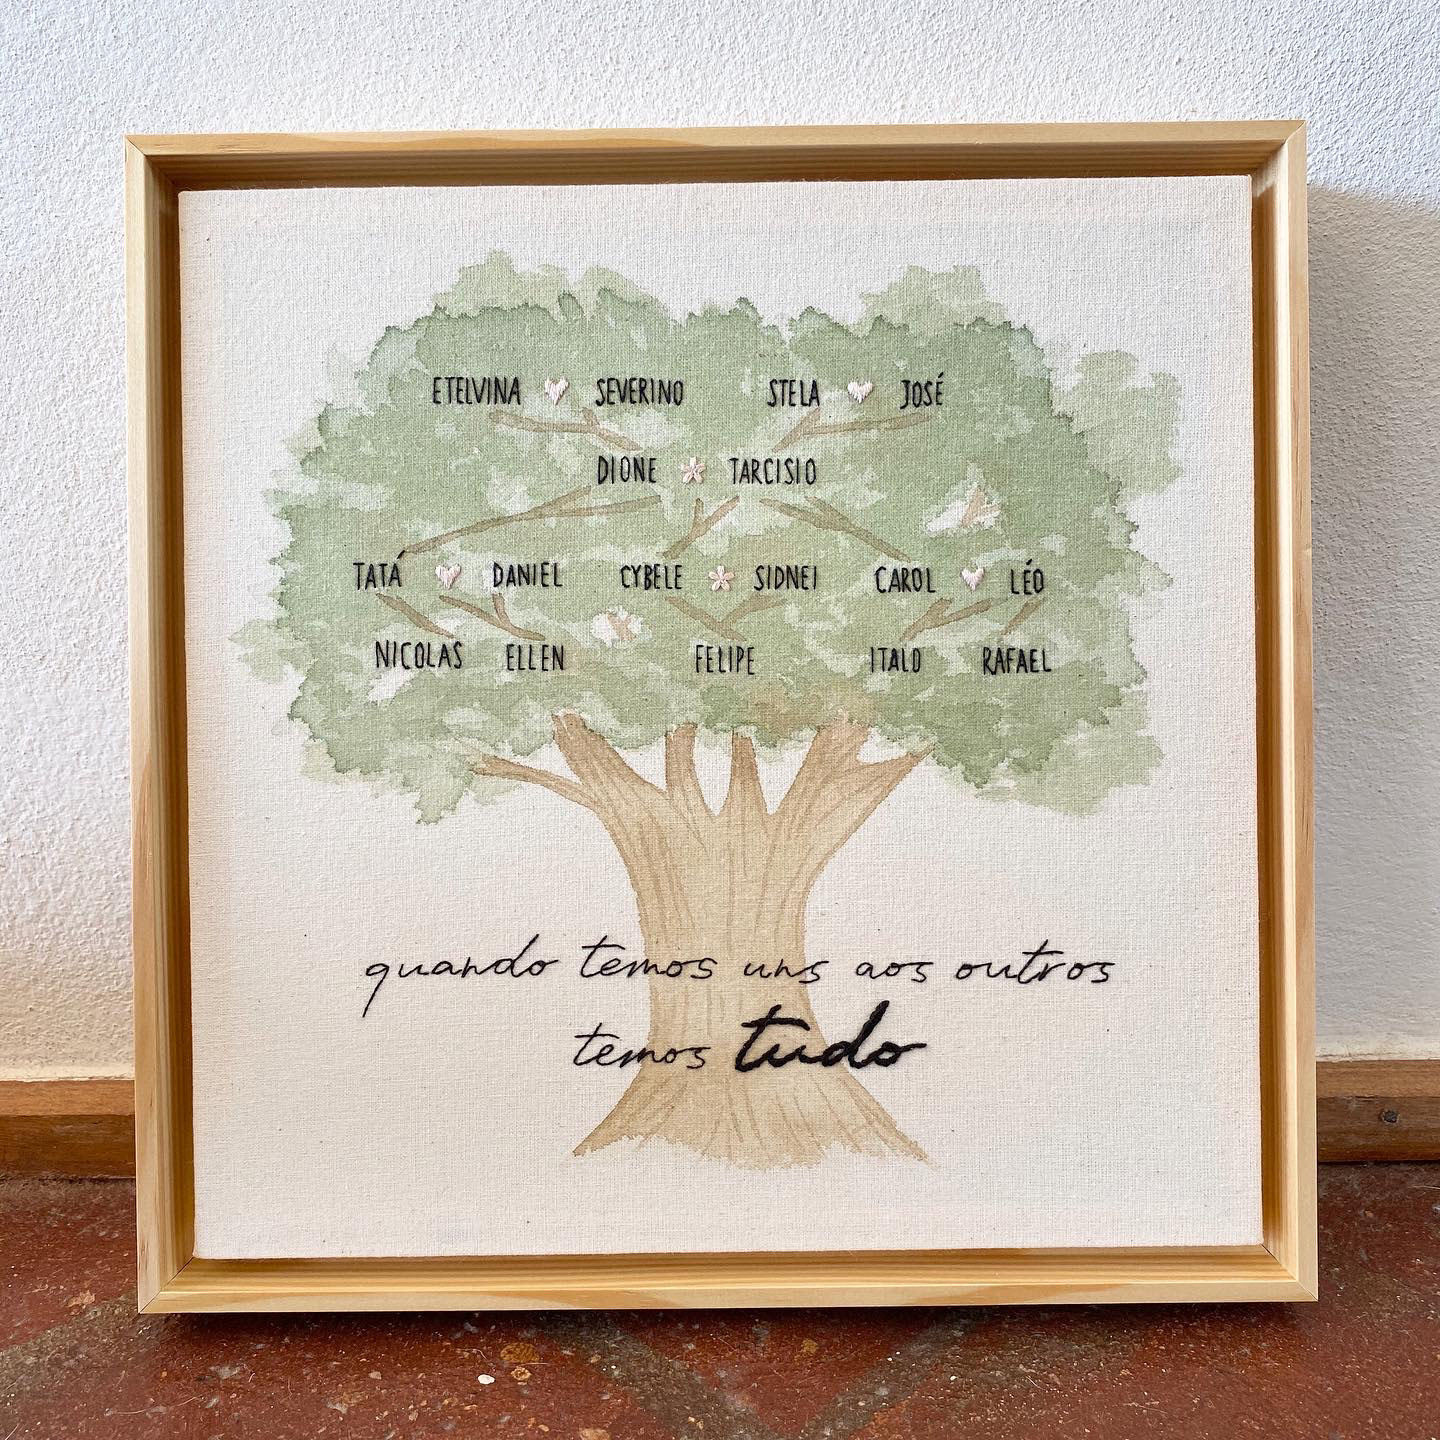 ETELVINA SEVERINO STELA JOSÉ
DIONE TARCISIO
TATÁ DANIEL CYBELE SIDNEI CAROL LÉO
NICOLAS ELLEN FELIPE ITALO RAFAEL
quando temos uns aos outros
temos tudo